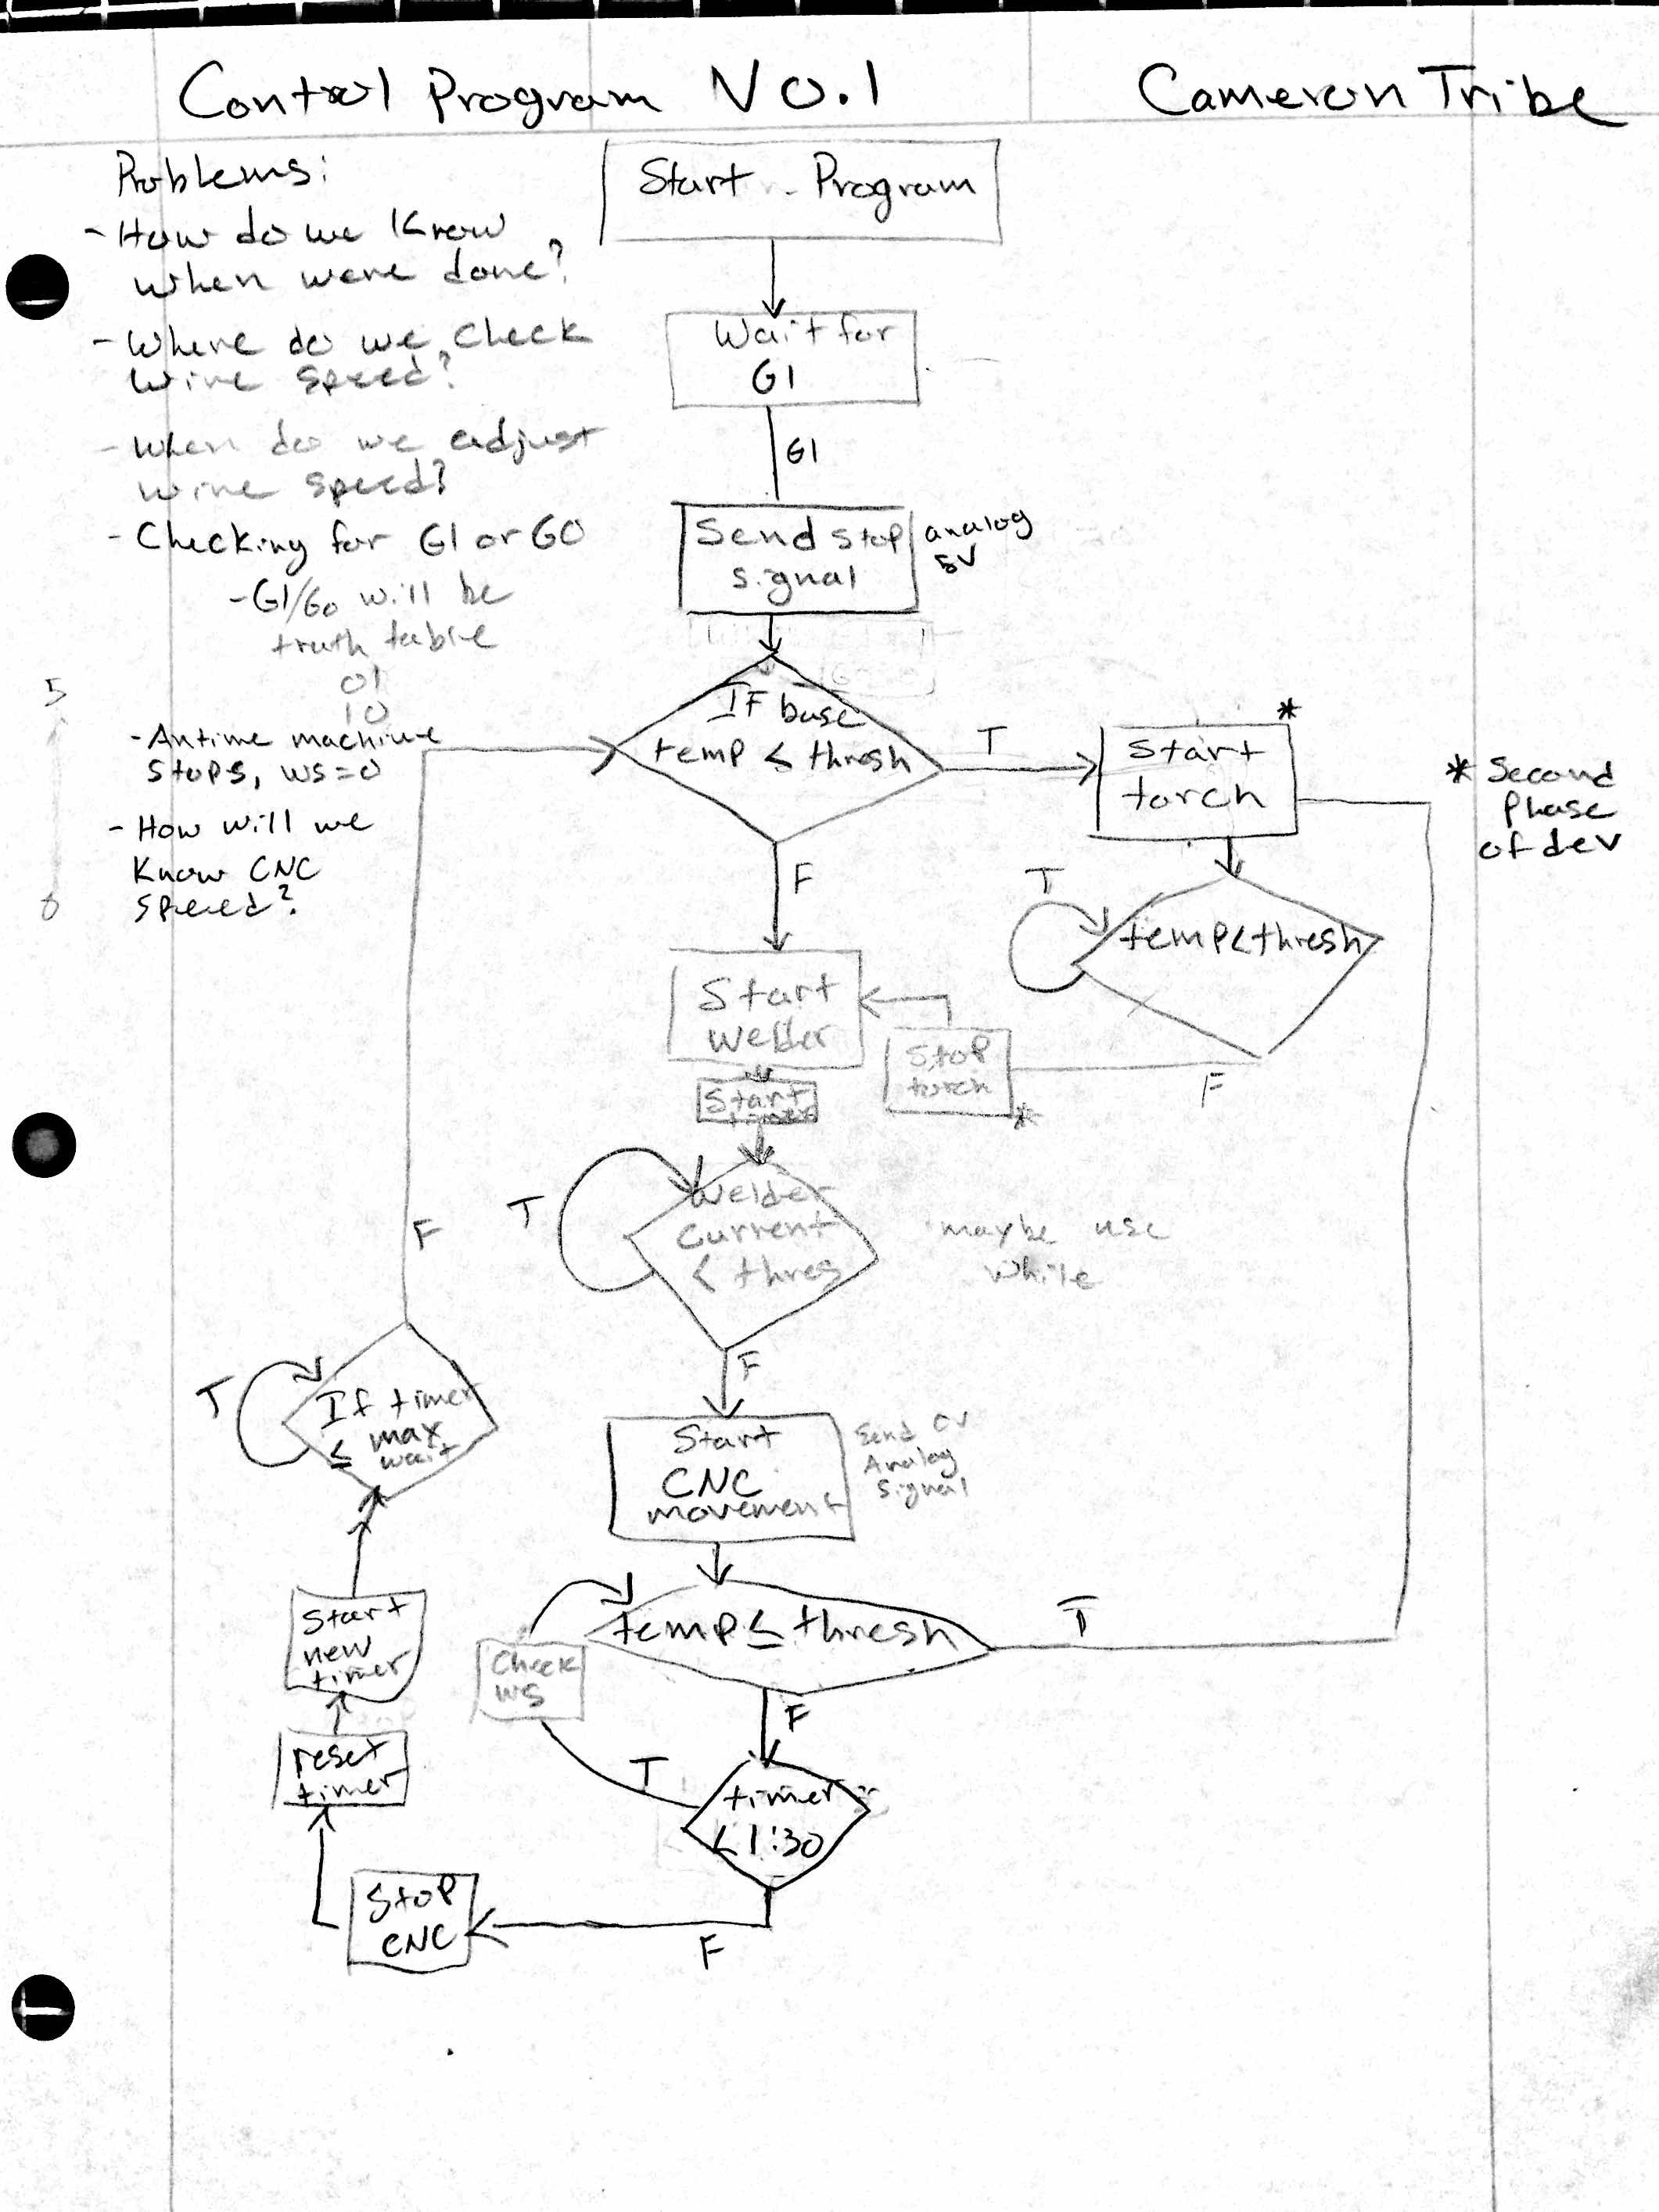 Control Program V0.1
Cameron Tribe
Problems:
- How do we know
when were done?
- Where do we check
wire speed?
- When do we adjust
wire speed?
- Checking for G1 or G0
- G1/G0 will be
truth table
01
10
- Antime machine
stops, ws=0
- How will we
know CNC
speed?
5
0
Start Program
Wait for
G1
G1
Send stop
signal
analog
5V
IF base
temp ≤ thresh
T
F
Start
torch
*
* Second
Phase
of dev
T
temp<thresh
F
Stop
torch
*
Start
Welder
Start
timer
T
Welder
Current
< thres
maybe use
while
F
Start
CNC
movement
Send 0V
Analog
Signal
temp ≤ thresh
T
F
Check
WS
T
timer
<1:30
F
Stop
CNC
reset
timer
Start
new
timer
T
If timer
≤ max
wait
F